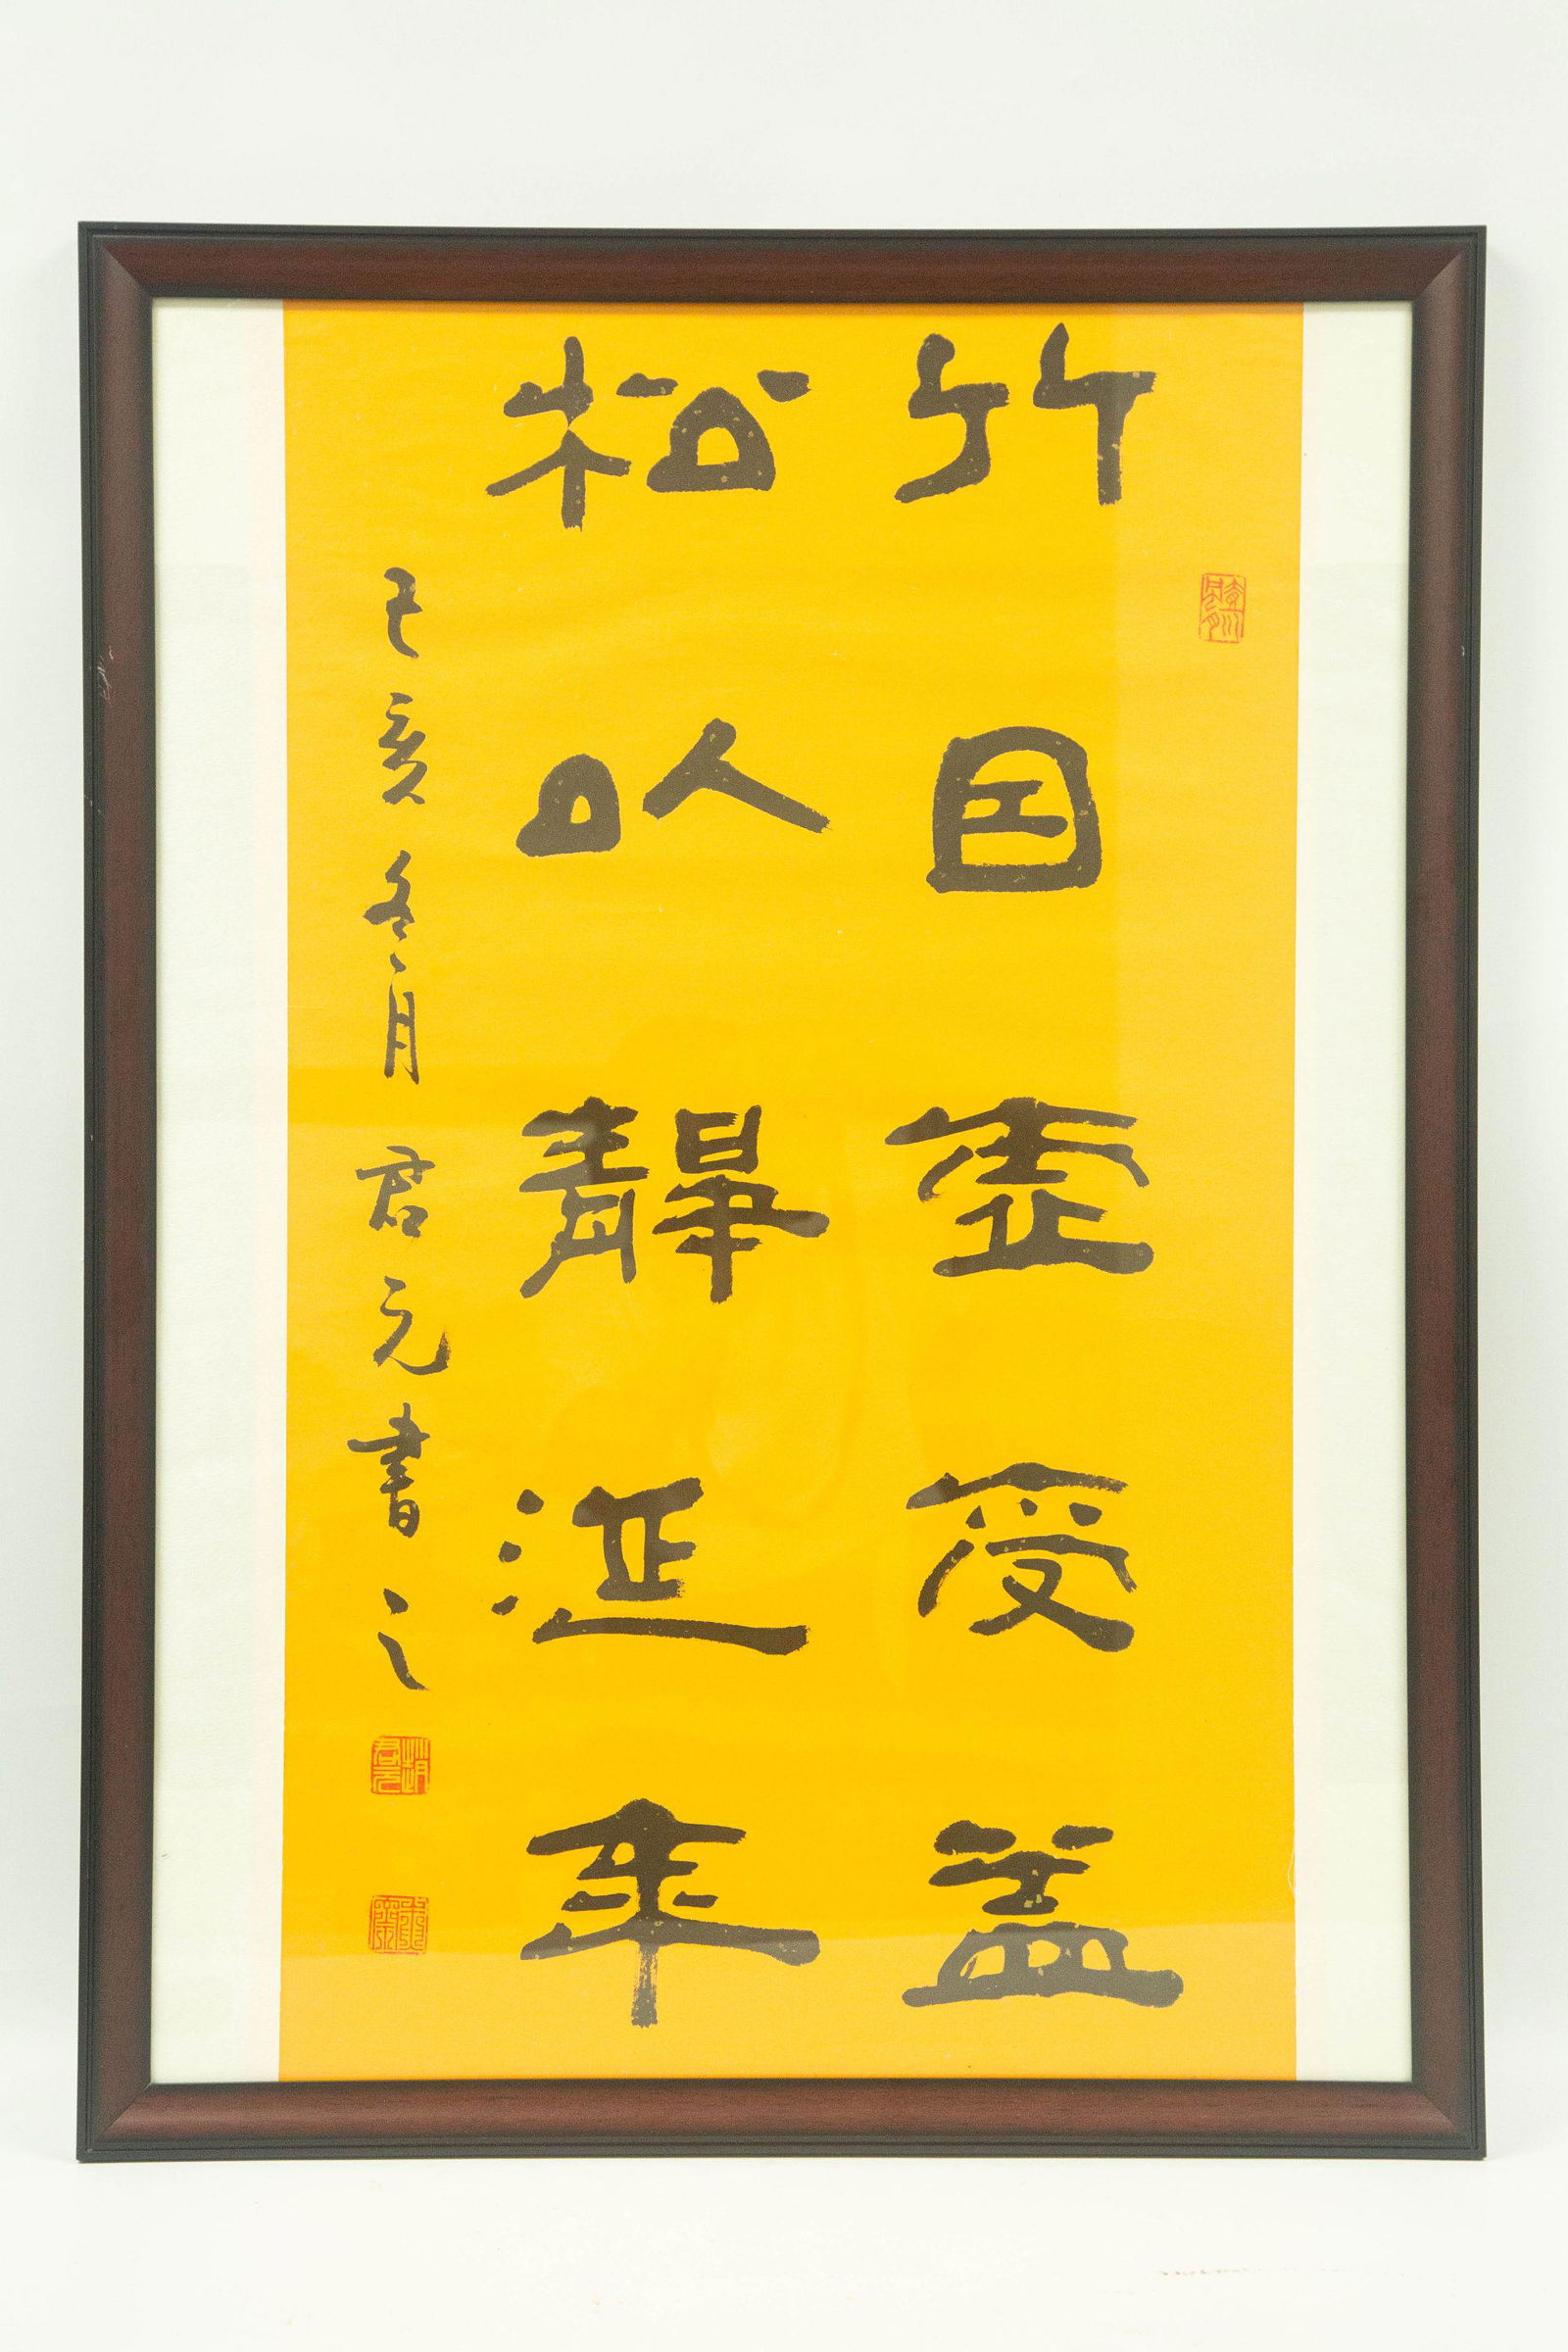 竹因虛受益
松以靜延年
己亥冬月君元書之
趙君元